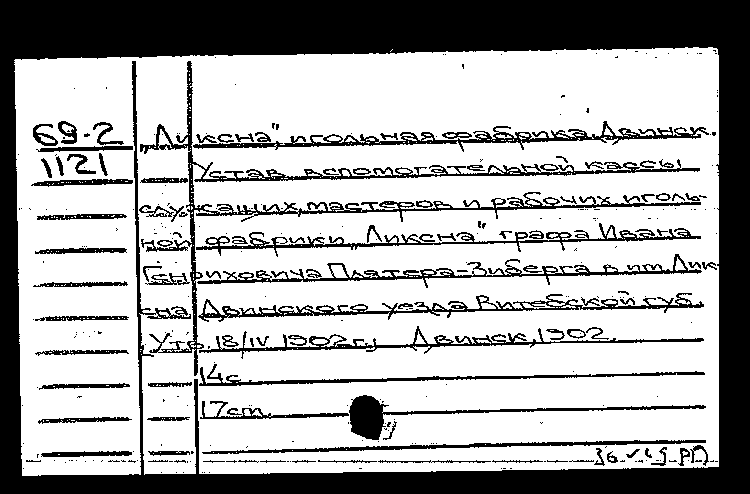 69-2
1121
„Ликсна", игольная фабрика. Двинск.
Устав вспомогательной кассы
служащих, мастеров и рабочих иголь-
ной фабрики „Ликсна" графа Ивана
Генриховича Платера-Зиберга в им. Лик-
сна Двинского уезда Витебской губ.
[Утв. 18/IV 1902 г.] Двинск, 1902.
14 с.
17 cm.